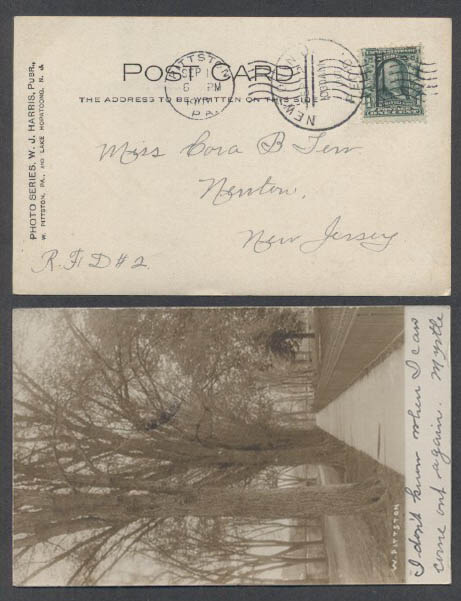 POST CARD
THE ADDRESS TO BE WRITTEN ON THIS SIDE
PITTSTON
SEP 1
6 PM
PA.
NEW
PHOTO SERIES, W. J. HARRIS, PUBR.,
W. PITTSTON, PA., AND LAKE HOPATCONG, N. J.
Miss Cora B Terr
Newton,
New Jersey
R.F.D #2.
I don't know when I can
come out again. Myrtle
W. PITTSTON